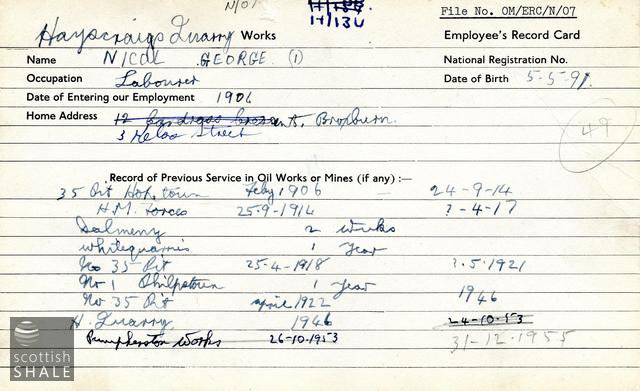 N/07
H/134
File No. OM/ERC/N/07
Hayscraigs Quarry Works
Employee's Record Card
Name NICOL GEORGE (1)
National Registration No.
Occupation Labourer
Date of Birth 5-5-91.
Date of Entering our Employment 1906
Home Address 12 Broxburn.
3 Kelso Street
49
Record of Previous Service in Oil Works or Mines (if any) :—
35 Pit Hopetoun Feby 1906 24-9-14
H.M. Forces 25-9-1914 ?-4-17
Dalmeny 2 weeks
Whitequarries 1 Year
No 35 Pit 25-4-1918 ?.5.1921
No 1 Philpstoun 1 Year
No 35 Pit April 1922 1946
H. Quarry. 1946 24-10-53
Pumpherston Works 26-10-1953 31-12-1955
scottish
SHALE